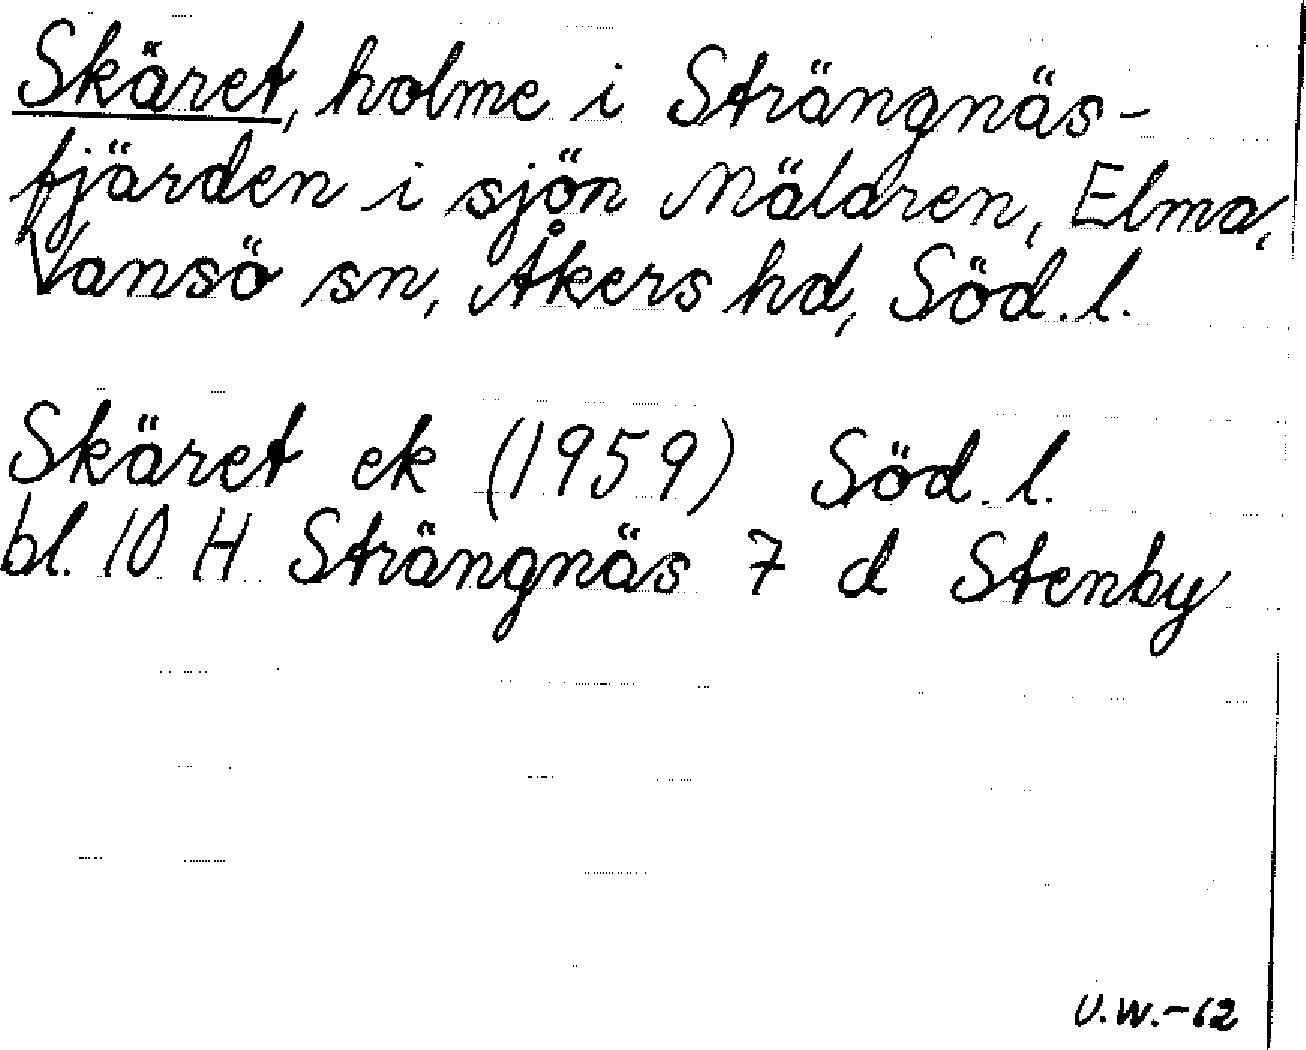 Skäret, holme i Strängnäs-
fjärden i sjön Mälaren, Elma,
Vansö sn, Åkers hd, Söd. l.
Skäret ek (1959) Söd. l.
bl. 10 H Strängnäs 7 d Stenby
U.W.-62